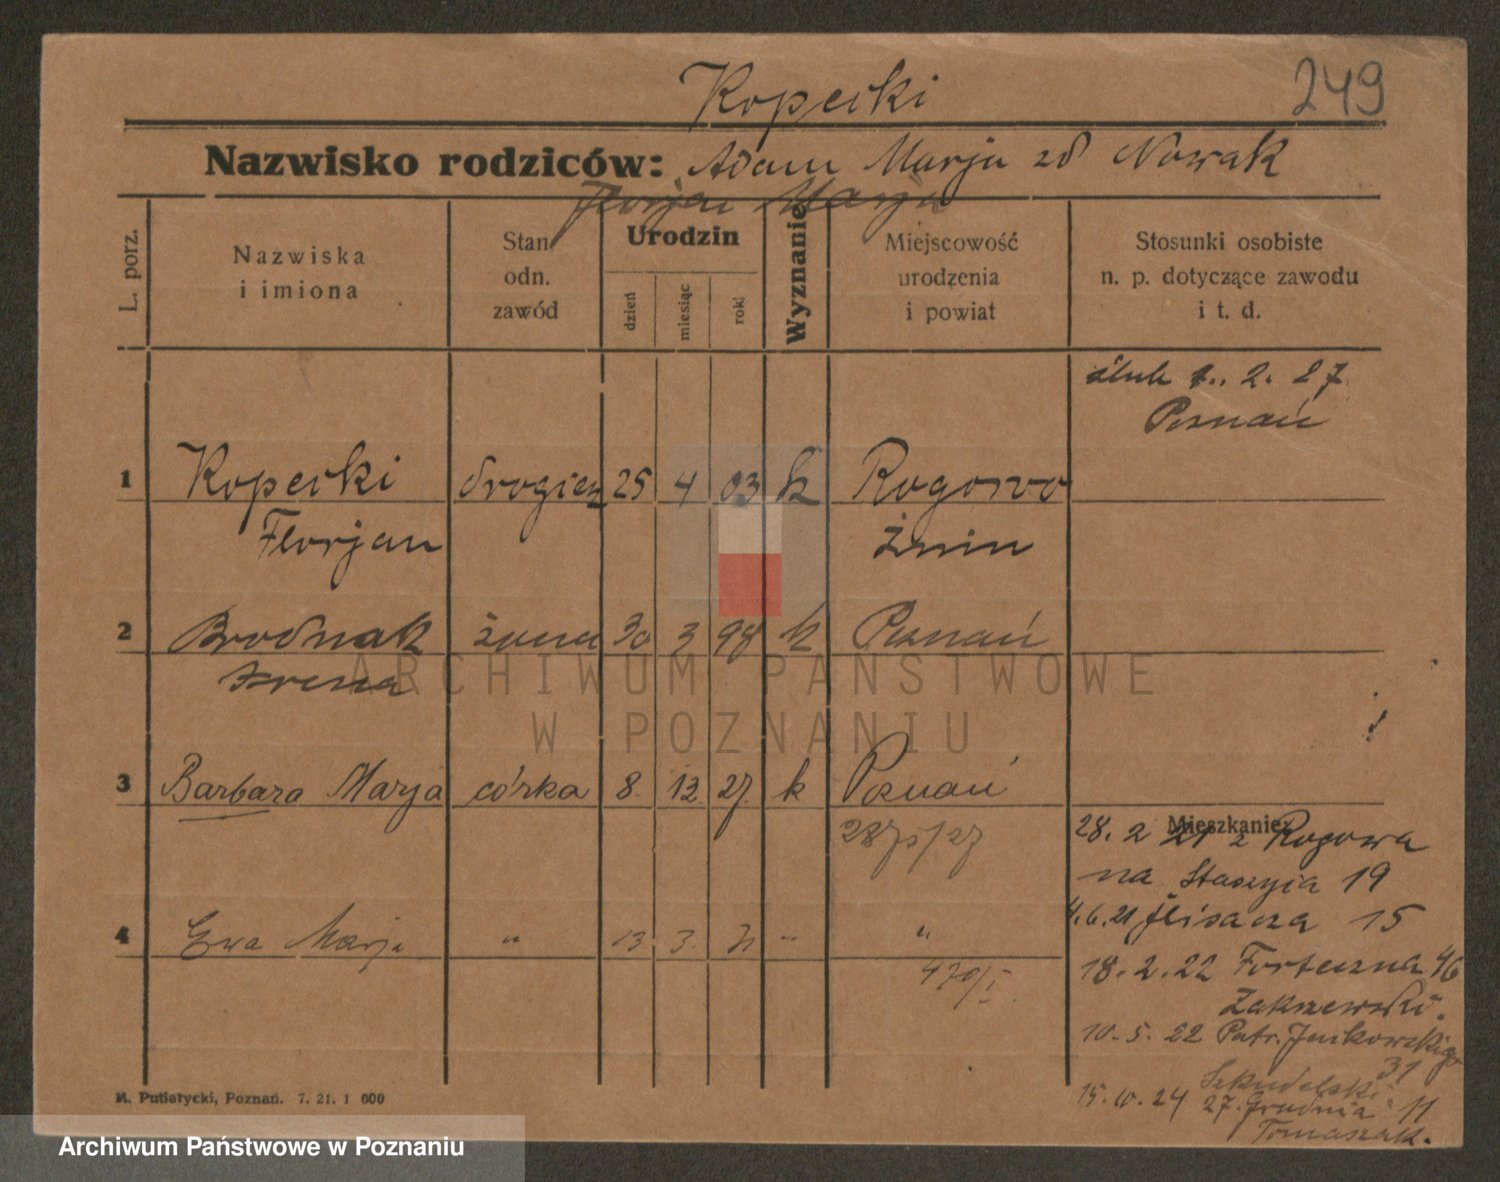 249
Kopecki
Nazwisko rodziców: Adam Marja zd Nowak
Florjan Marja
L. porz.
Nazwiska
i imiona
Stan
odn.
zawód
Urodzin
dzień
miesiąc
rok
Wyznanie
Miejscowość
urodzenia
i powiat
Stosunki osobiste
n. p. dotyczące zawodu
i t. d.
ślub 1. 2. 27
Poznań
1 Kopecki drogież 25 4 03 k Rogowo
Florjan Żnin
2 Brodniak żona 30 3 98 k Poznań
Irena
3 Barbara Marja córka 8. 12. 27. k Poznań
Mieszkanie:
28. 2 21 z Rogowa
na Staszyca 19
4.6.21 Flisacza 15
4 Ewa Marja " 13 3. " "
470/I
18.2.22 Forteczna 46
Zakrzewski.
10.5.22 Patr. Jackowskiego
31
Szkudelski
15.10.24 27. Grudnia 11
Tomaszak.
M. Putiatycki, Poznań. 7. 21. 1 000
ARCHIWUM PAŃSTWOWE
W POZNANIU
Archiwum Państwowe w Poznaniu